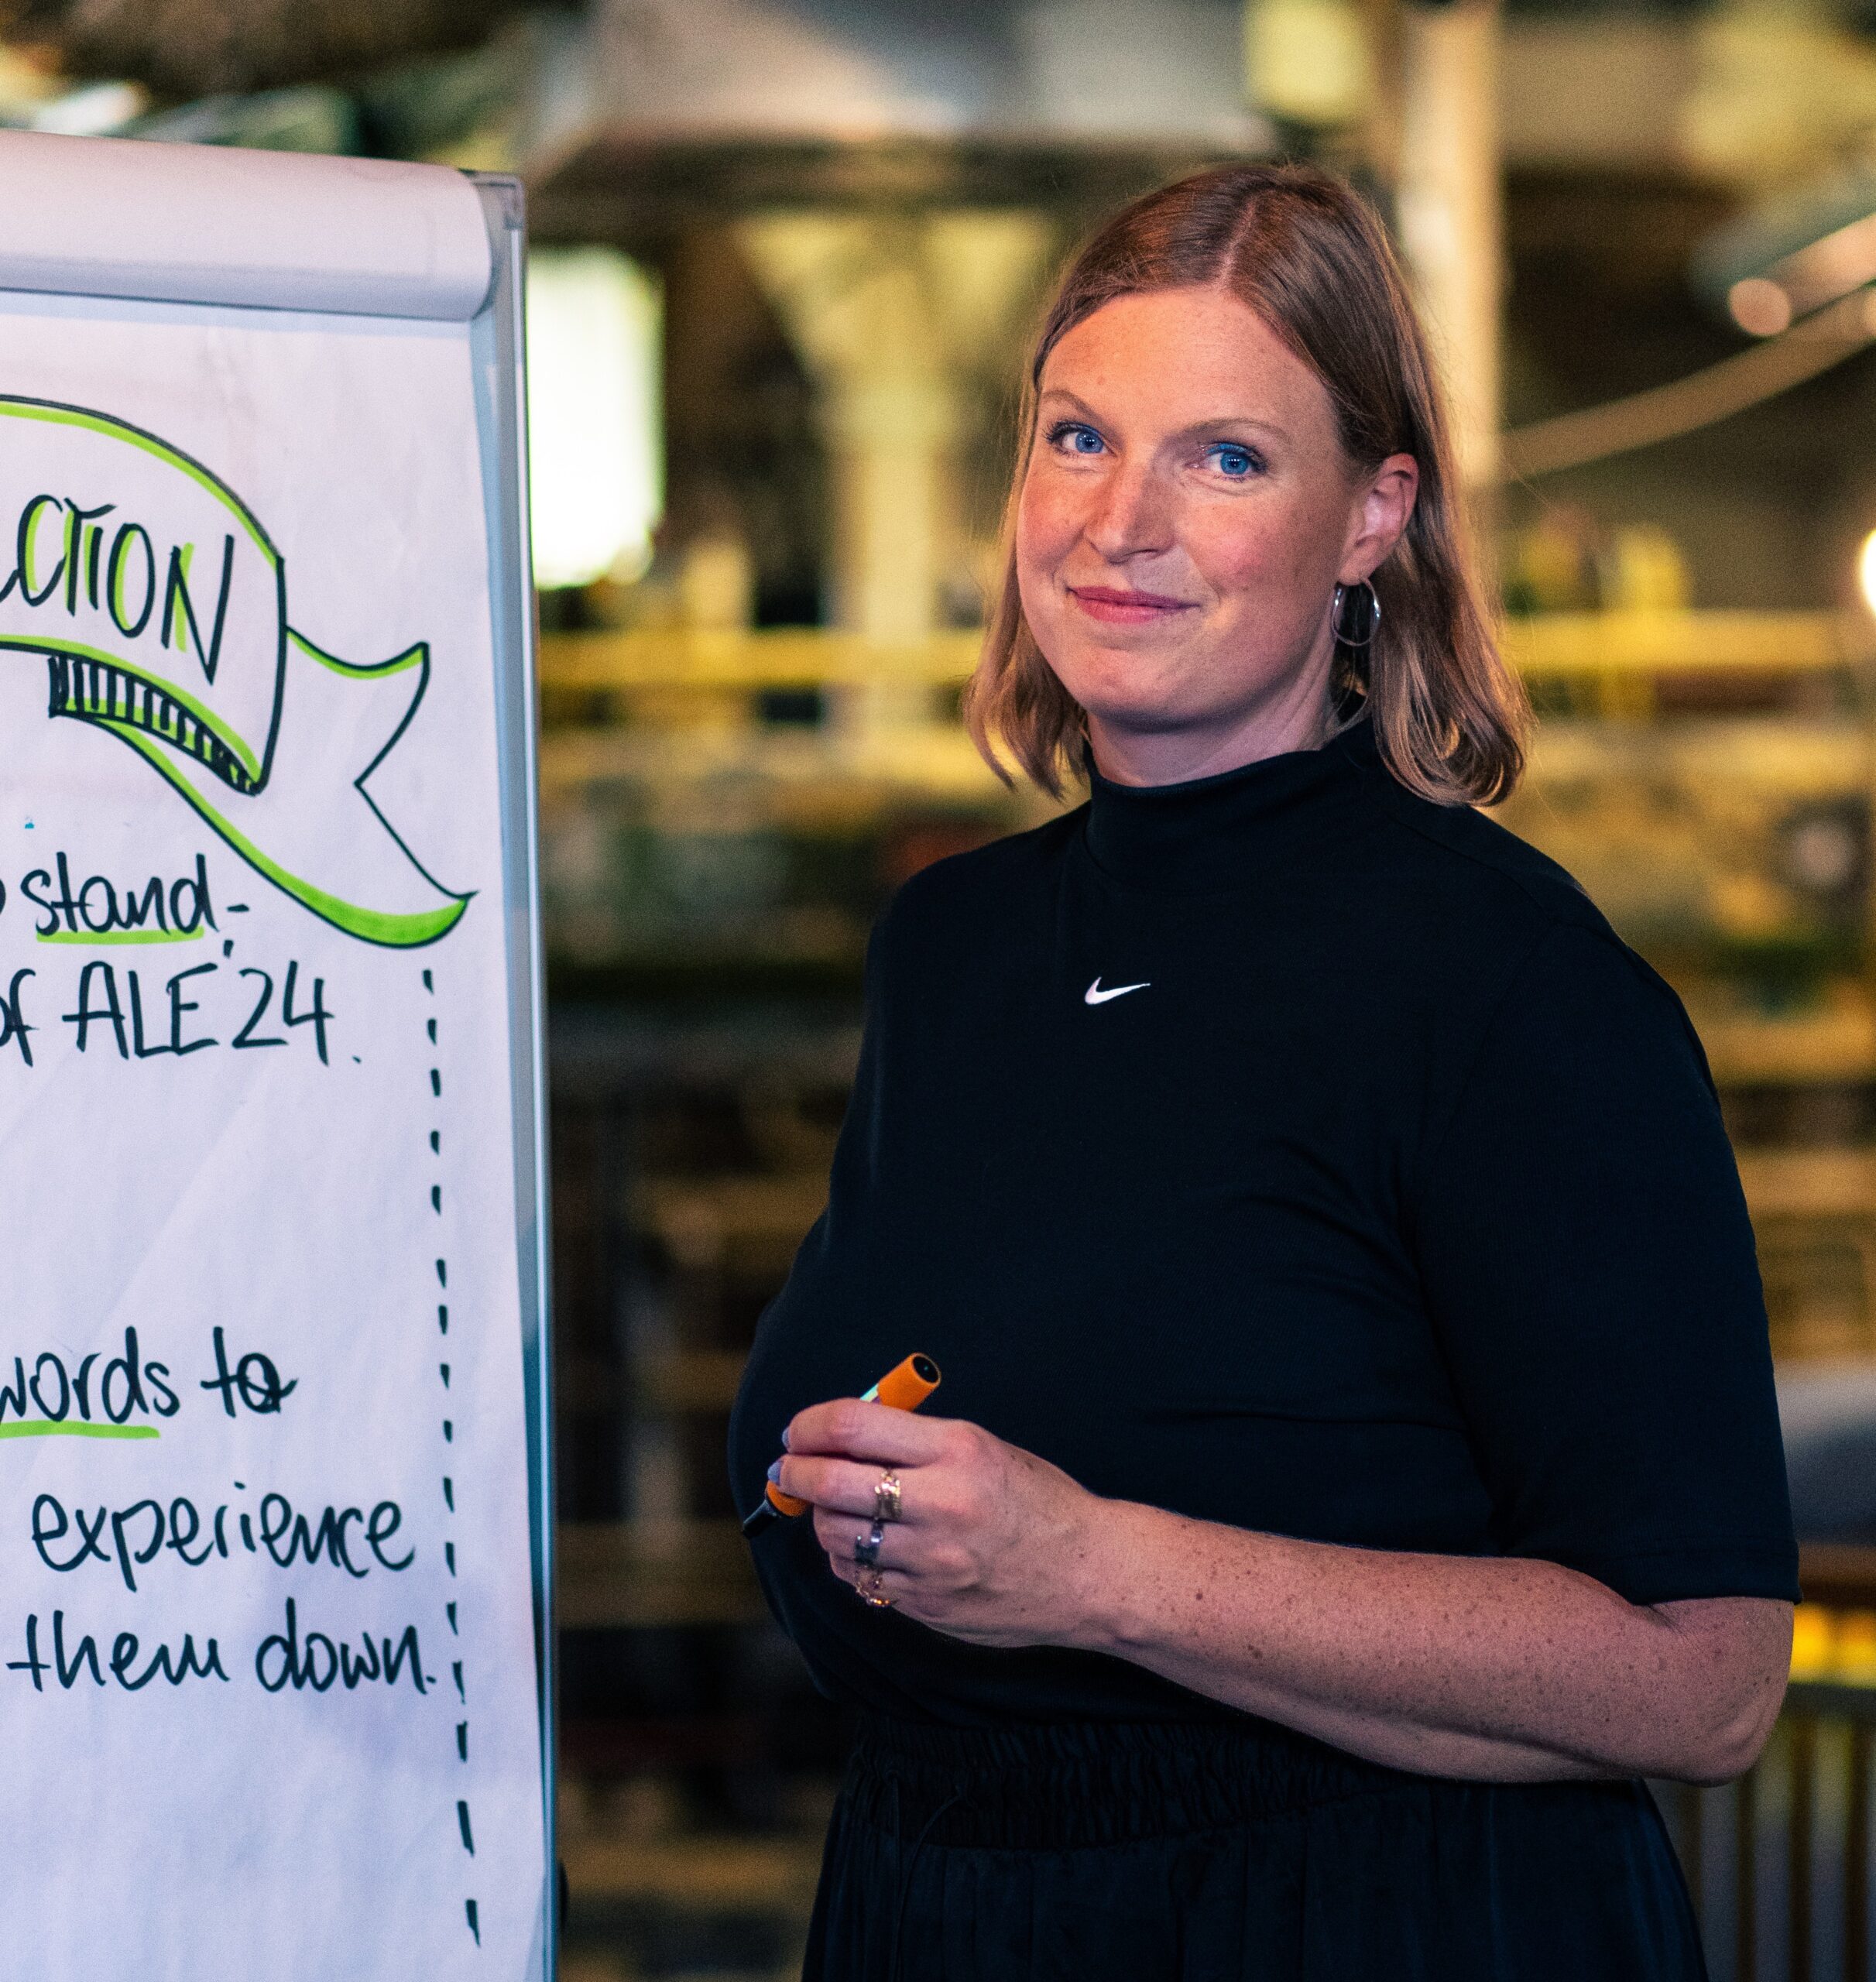 CTION
stand-
of ALE'24.
words to
experience
them down.